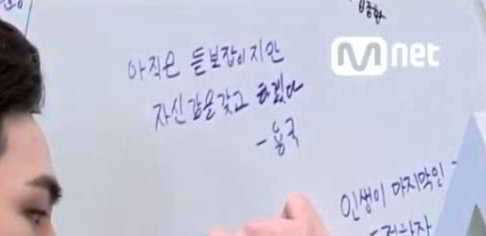 아직은 듣보잡이지만
자신감을 갖고 하겠다
- 용국
Mnet
인생이 마지막인